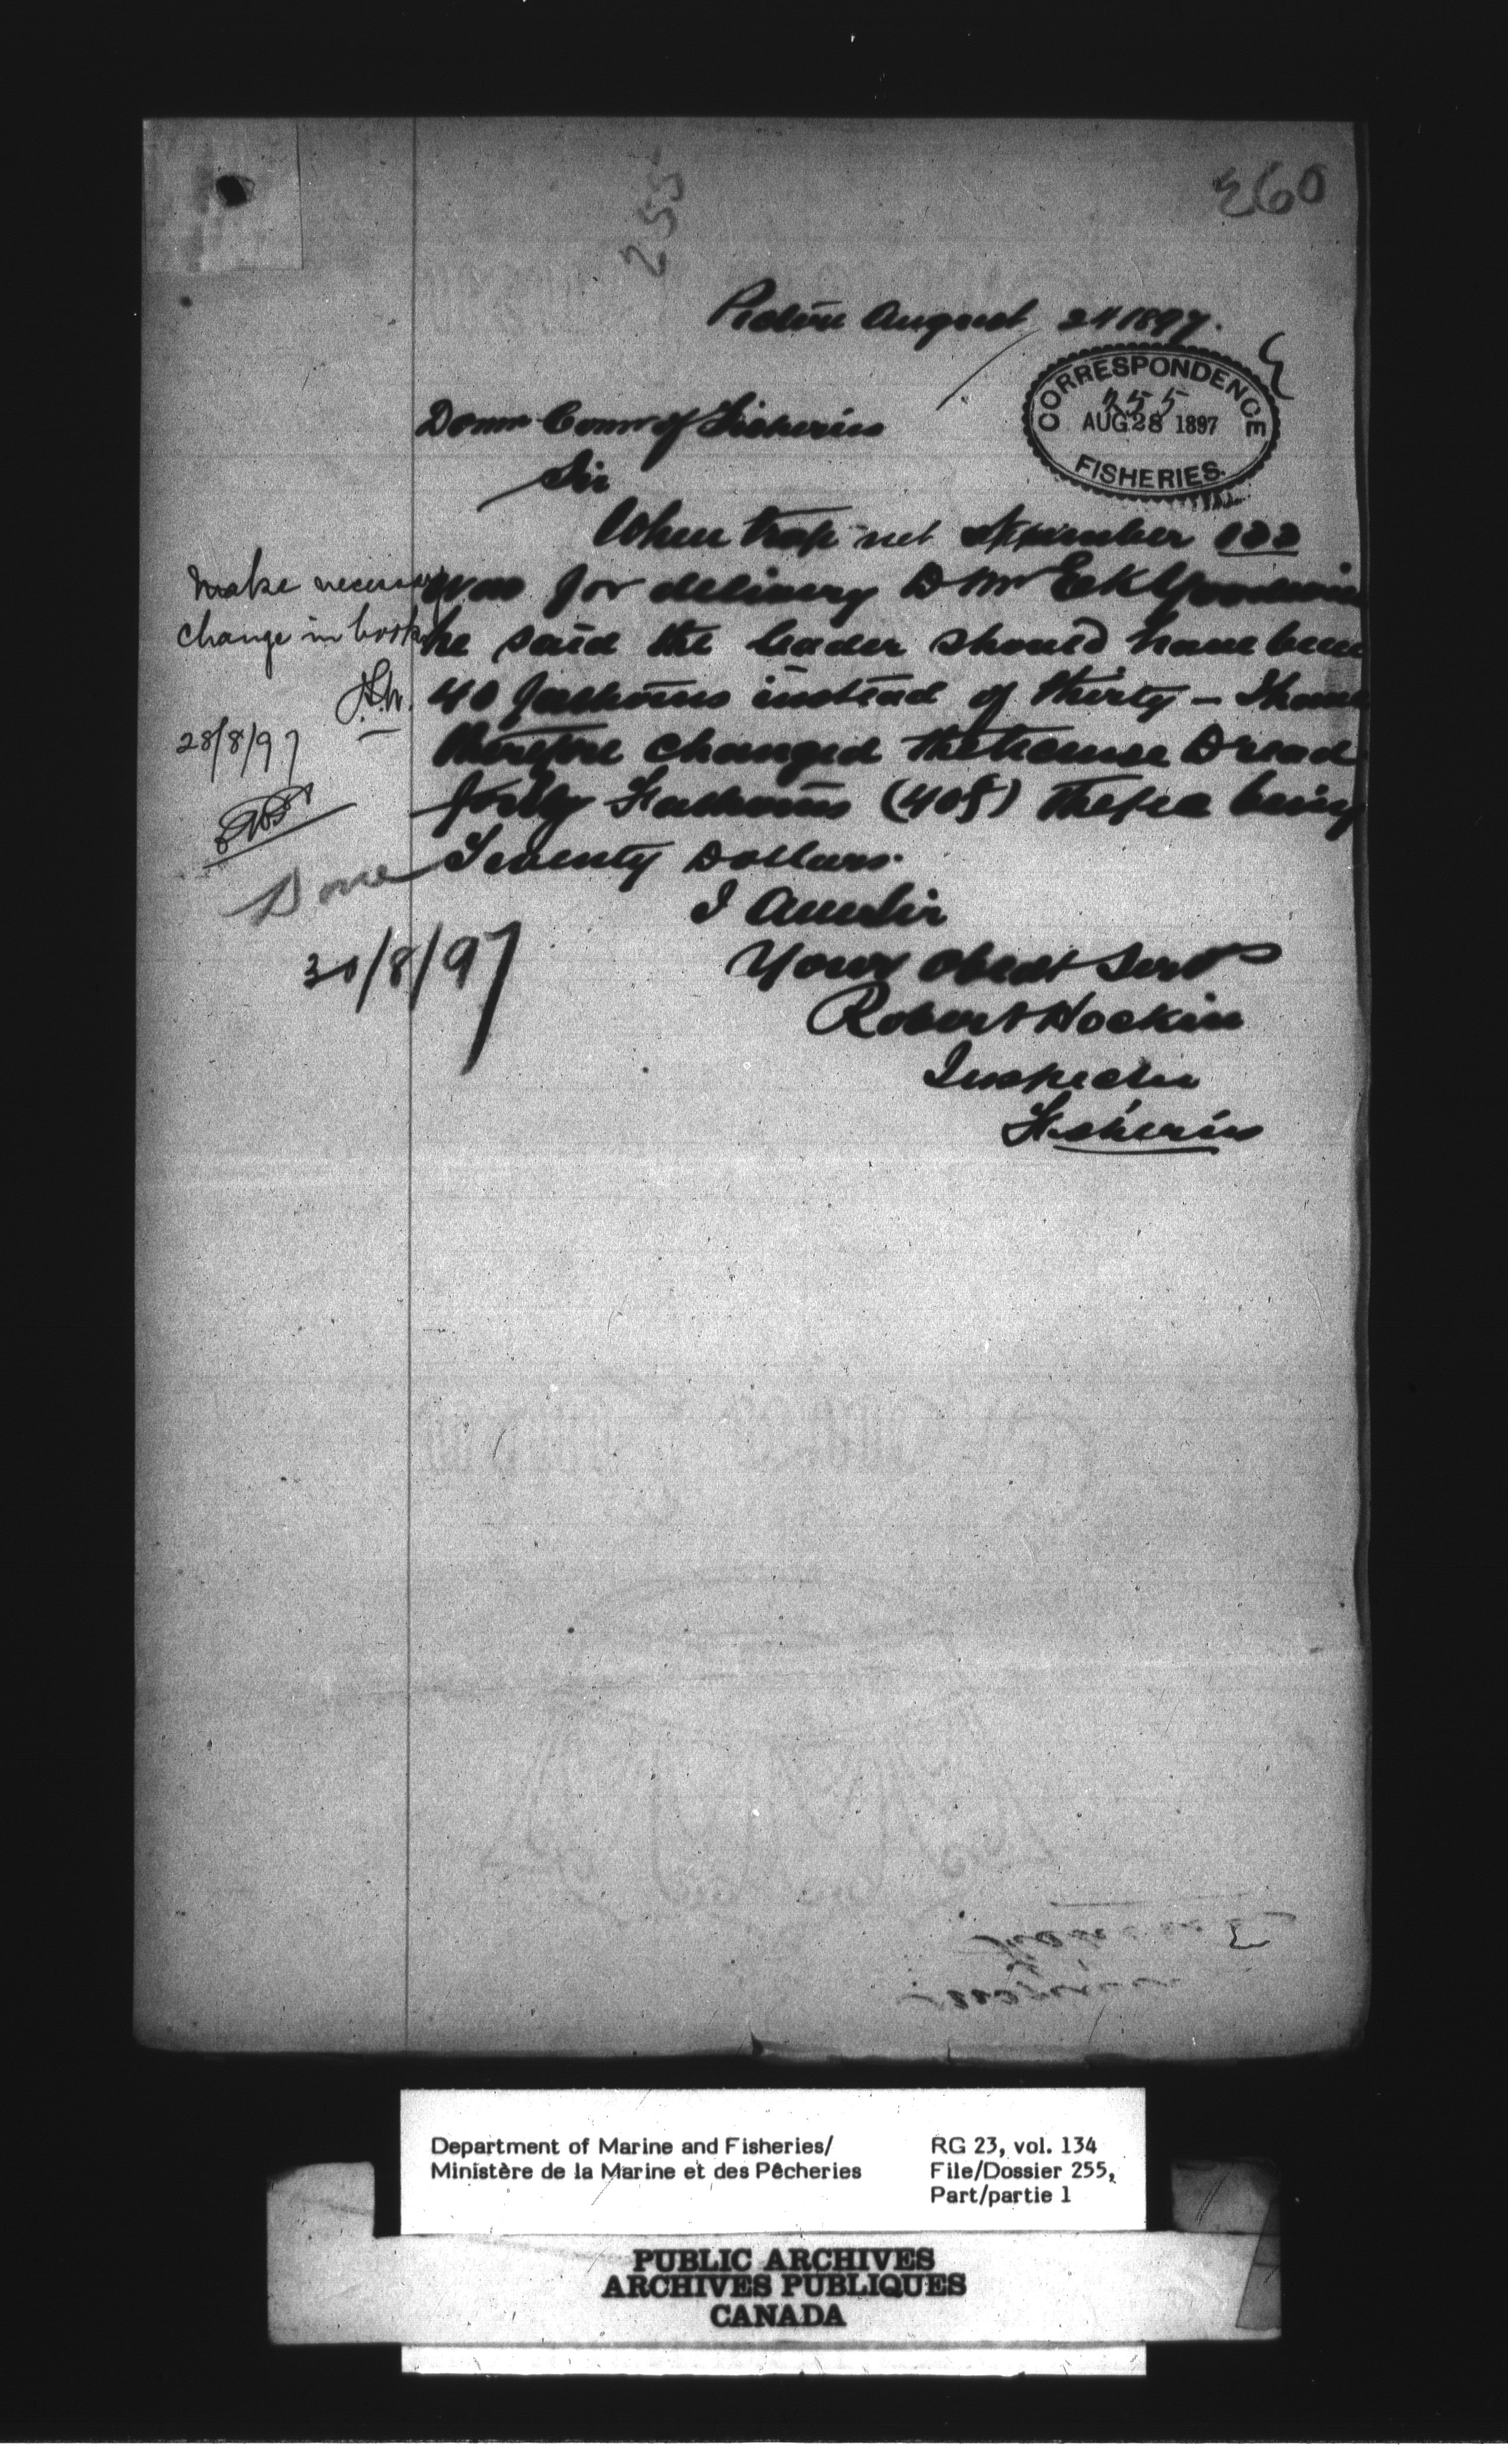 260
255
Pictou August 24 1897.
CORRESPONDENCE
255
AUG 28 1897
FISHERIES.
Domn Comr of Fisheries
Sir
When trap net number 122
was for delivery to Mr E K Goodwin
he said the leader should have been
40 fathoms instead of thirty - I have
therefore changed the license to read
forty Fathoms (40f) the fee being
Seventy Dollars.
I am Sir
Your obedt Servt
Robert Hockin
Inspector
Fisheries
Make necessary
change in book
28/8/97
Done
30/8/97
Department of Marine and Fisheries/
Ministère de la Marine et des Pêcheries
RG 23, vol. 134
File/Dossier 255,
Part/partie 1
PUBLIC ARCHIVES
ARCHIVES PUBLIQUES
CANADA